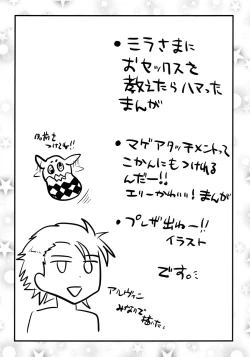 ・ミラさまに
おセックスを
教えたらハマった
まんが
・マグアタッチメントって
こかんにもつけれる
んだー!!
エリーかわいい!まんが
・プレザ出ねー!!
イラスト
です。
つけてね!!
アルヴィン
みなりで